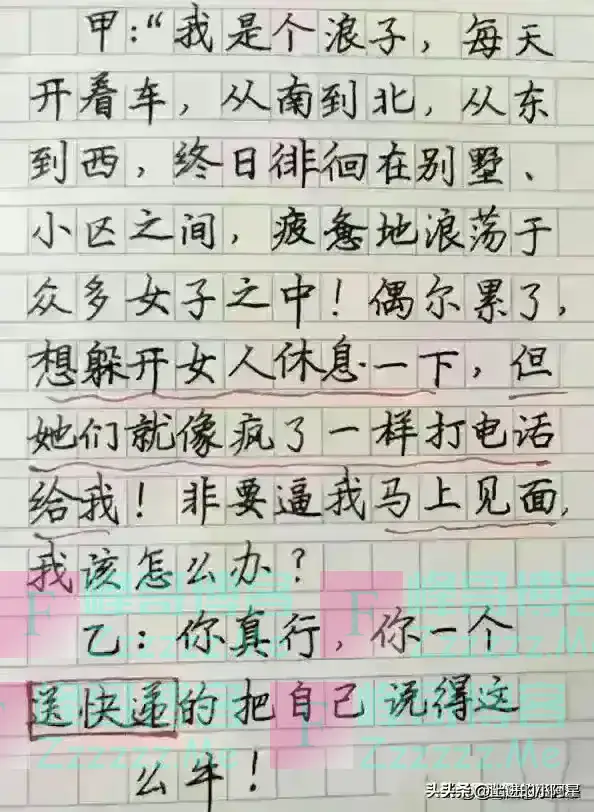 甲:“我是个浪子，每天
开着车，从南到北，从东
到西，终日徘徊在别墅、
小区之间，疲惫地浪荡于
众多女子之中！偶尔累了，
想躲开女人休息一下，但
她们就像疯了一样打电话
给我！非要逼我马上见面，
我该怎么办？
乙：你真行，你一个
送快递的把自己说得这
么牛！
Zzzzzz.Me
Zzzzzz.Me